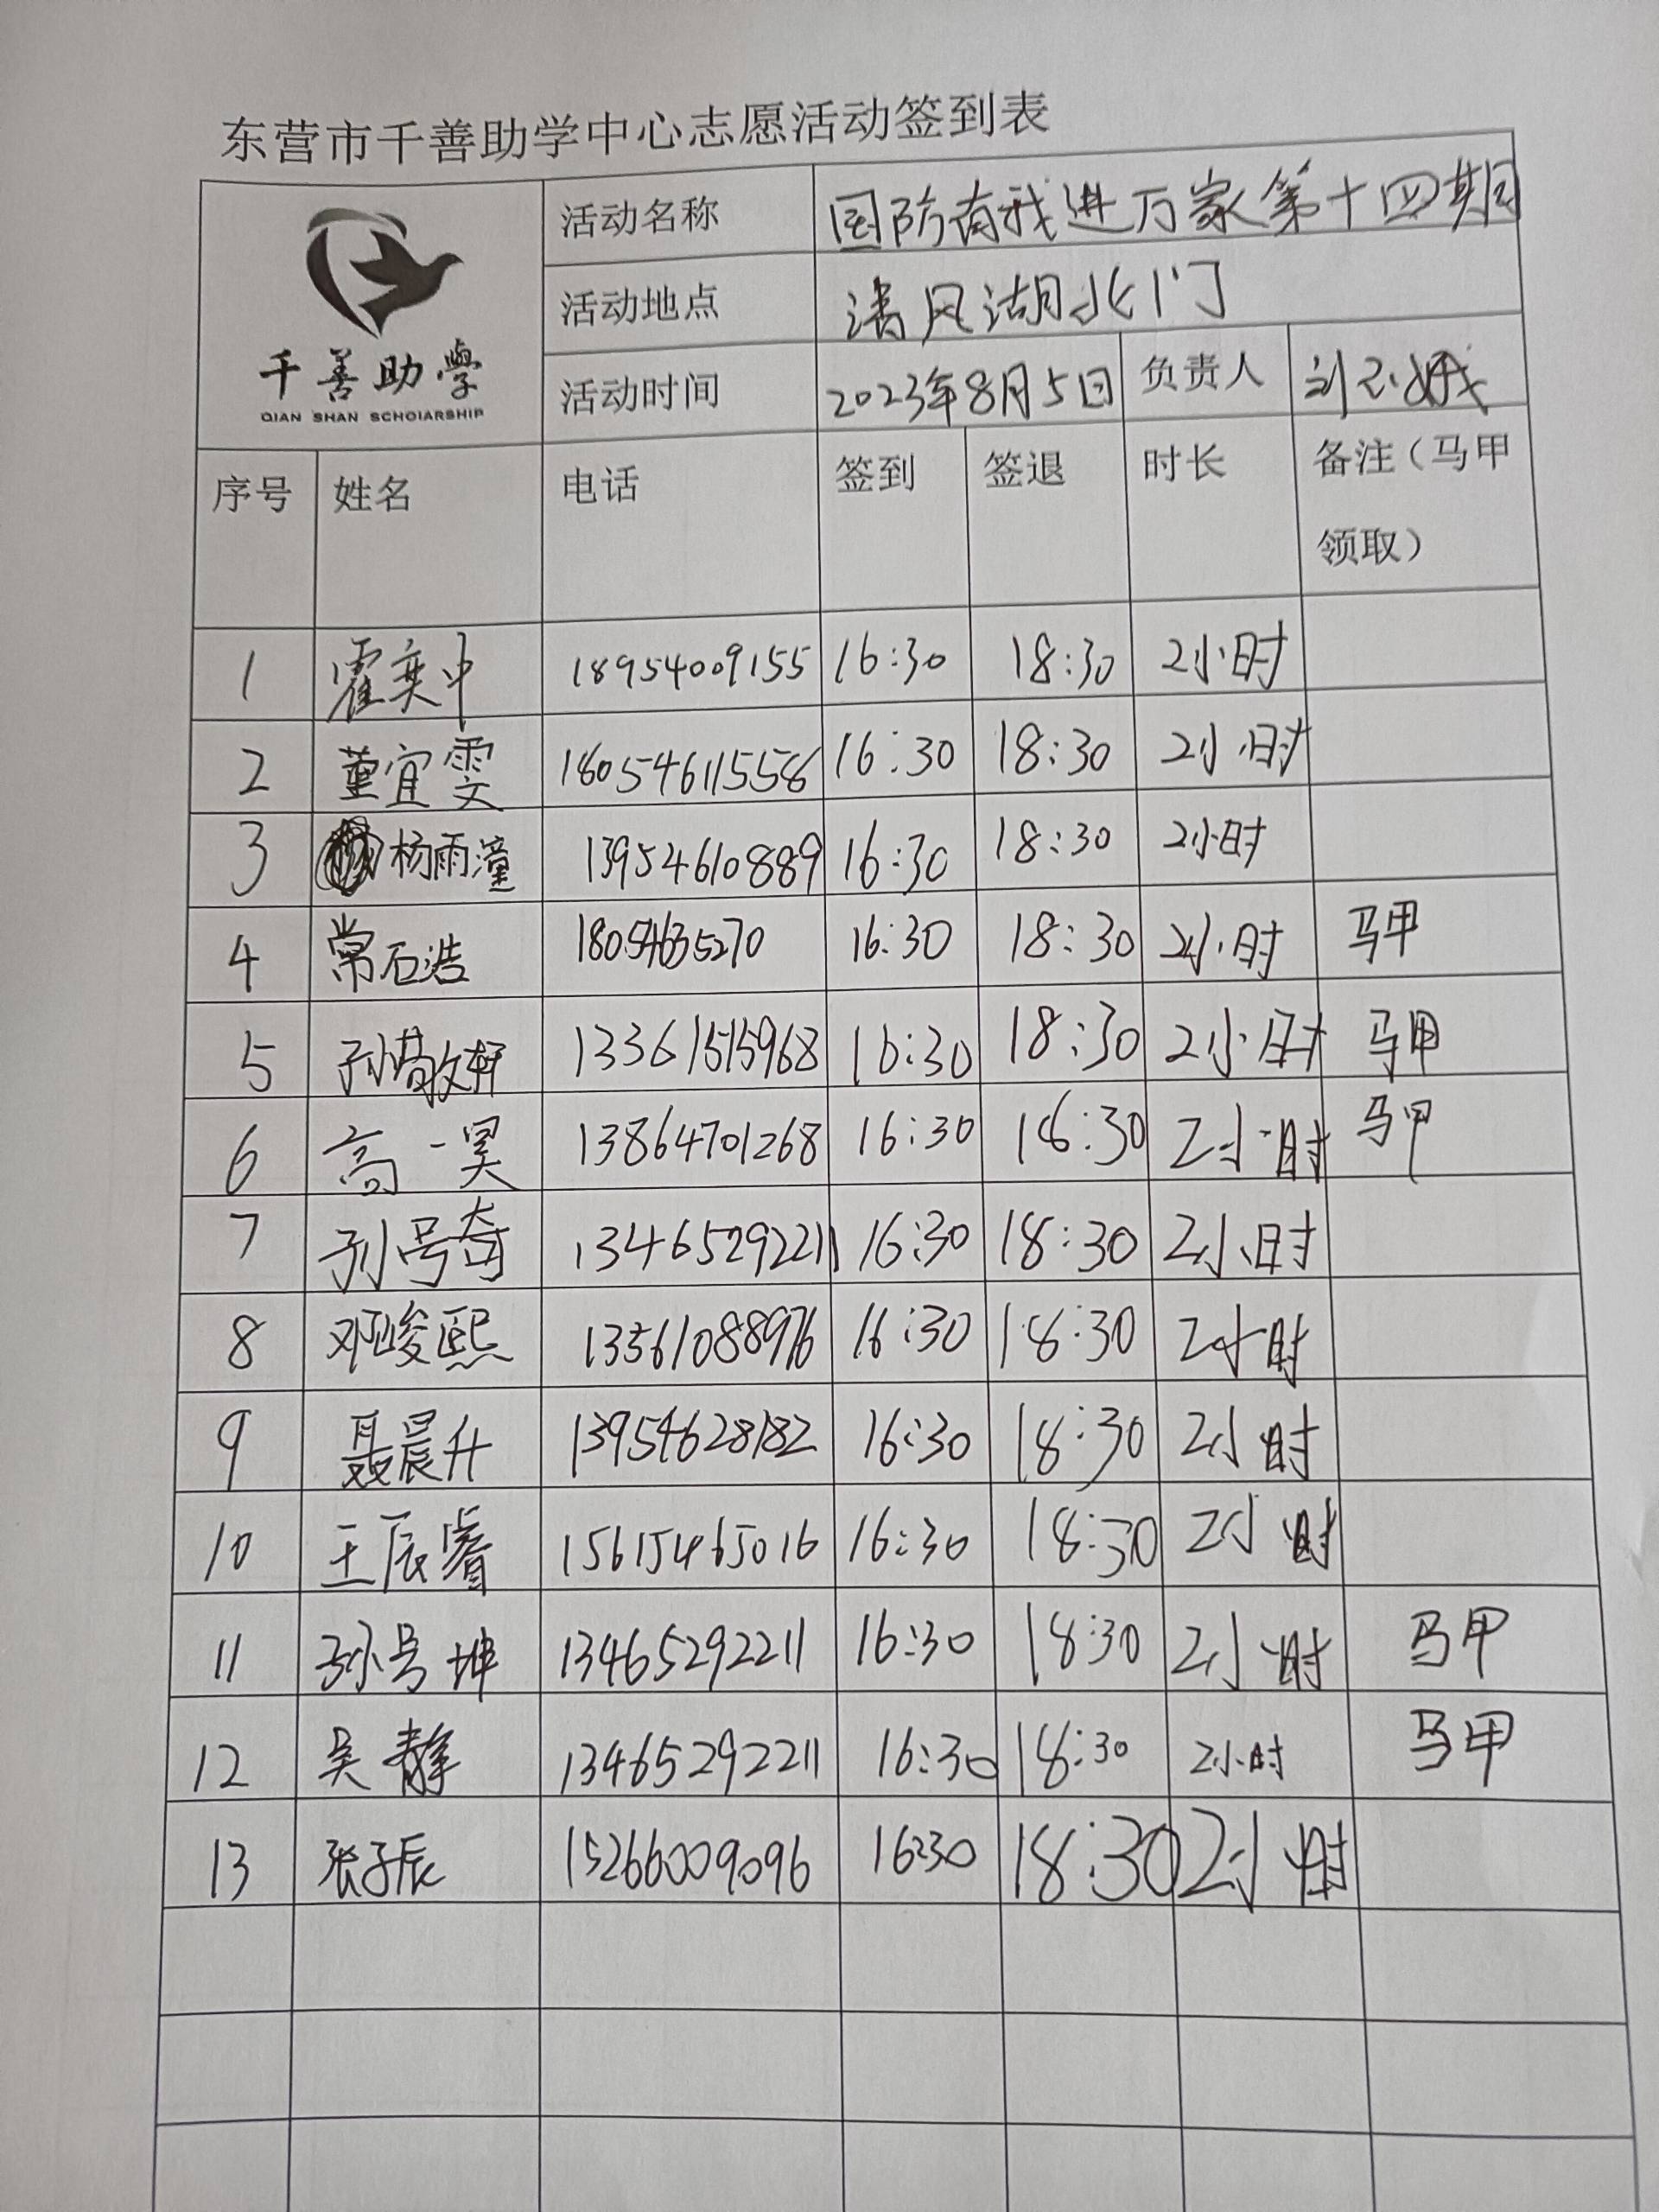 东营市千善助学中心志愿活动签到表
千善助學
QIAN SHAN SCHOIARSHIP
活动名称 国防有我进万家第十四期
活动地点 清风湖北门
活动时间 2023年8月5日 负责人
序号 姓名 电话 签到 签退 时长 备注（马甲
领取）
1 霍奕中 18954009155 16:30 18:30 2小时
2 董宜雯 180546115558 16:30 18:30 2小时
3 杨雨潼 13954610889 16:30 18:30 2小时
4 常石浩 18054635270 16:30 18:30 2小时 马甲
5 孙敬轩 13361515968 16:30 18:30 2小时 马甲
6 高一昊 13864701268 16:30 18:30 2小时 马甲
7 孙号奇 13465292211 16:30 18:30 2小时
8 邓峻熙 13561088976 16:30 18:30 2小时
9 聂晨升 13954628182 16:30 18:30 2小时
10 王辰睿 15615465016 16:30 18:30 2小时
11 孙号坤 13465292211 16:30 18:30 2小时 马甲
12 吴静 13465292211 16:30 18:30 2小时 马甲
13 张子辰 15266009096 16:30 18:30 2小时